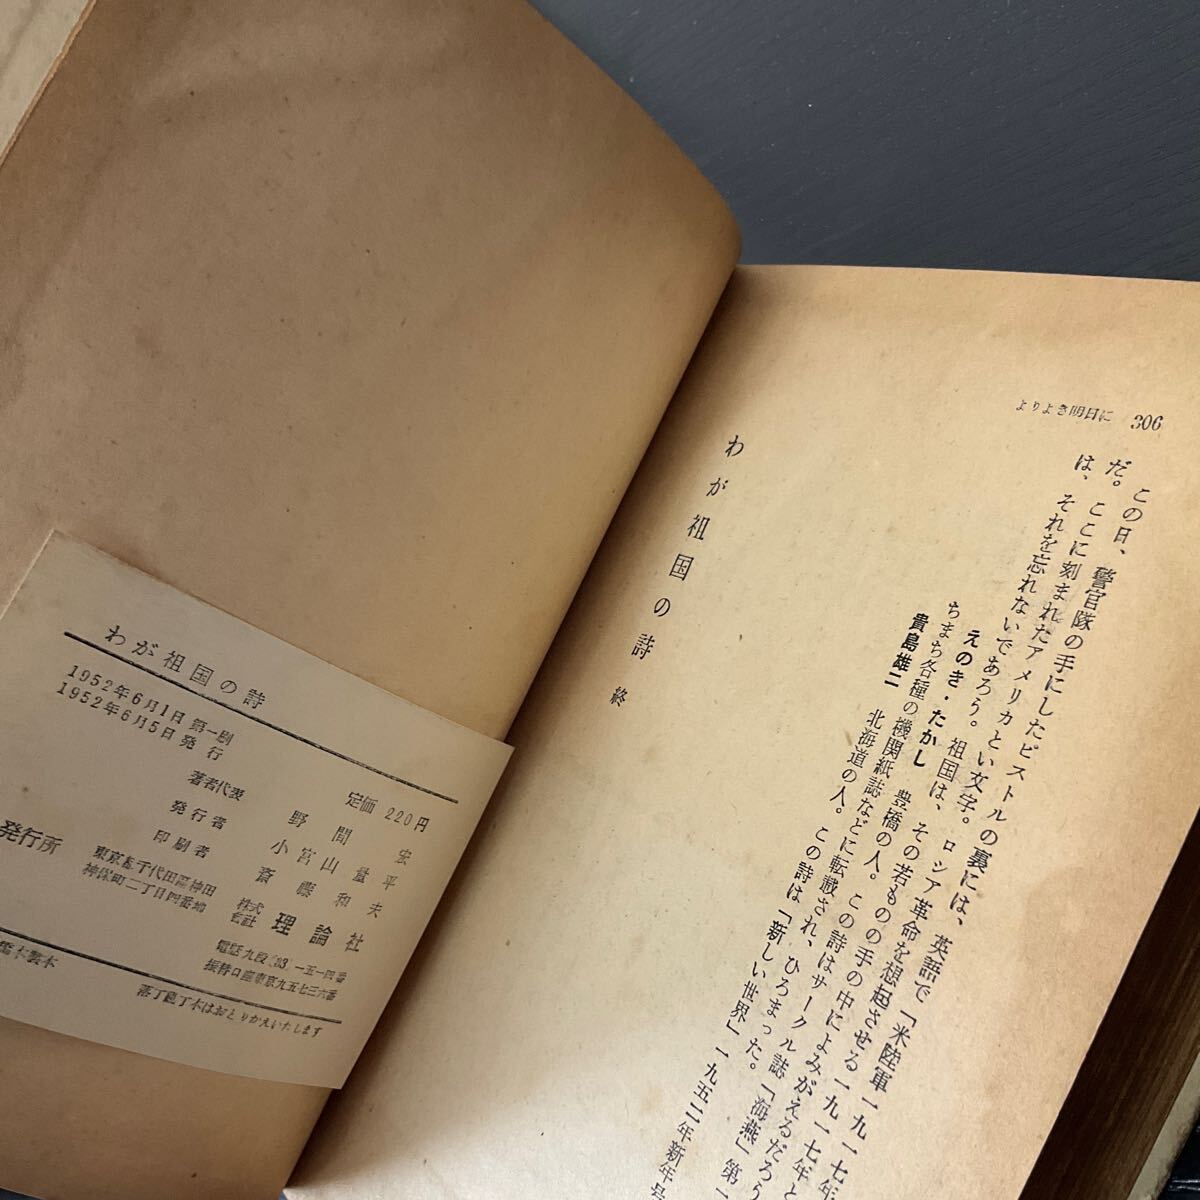 よりよき明日に 306
この日、警官隊の手にしたピストルの裏には、英語で「米陸軍一九一七年
だ。ここに刻まれたアメリカとい文字。祖国は、ロシア革命を想起させる一九一七年と
は、それを忘れないであろう。その若ものの手の中によみがえるだろう
えのき・たかし 豊橋の人。この詩はサークル誌「海燕」第一
ちまち各種の機関紙誌などに転載され、ひろまった。
貴島雄二 北海道の人。この詩は「新しい世界」一九五二年新年号
わが祖国の詩 終
わが祖国の詩
1952年6月1日 第一刷
1952年6月5日 発行
定価 220円
著者代表 野間宏
発行者 小宮山量平
印刷者 斎藤和夫
発行所
東京都千代田区神田
神保町二丁目四番地
株式会社 理論社
電話九段(33)一五一四番
振替口座東京九五七三六番
橋本製本
落丁乱丁本はおとりかえいたします